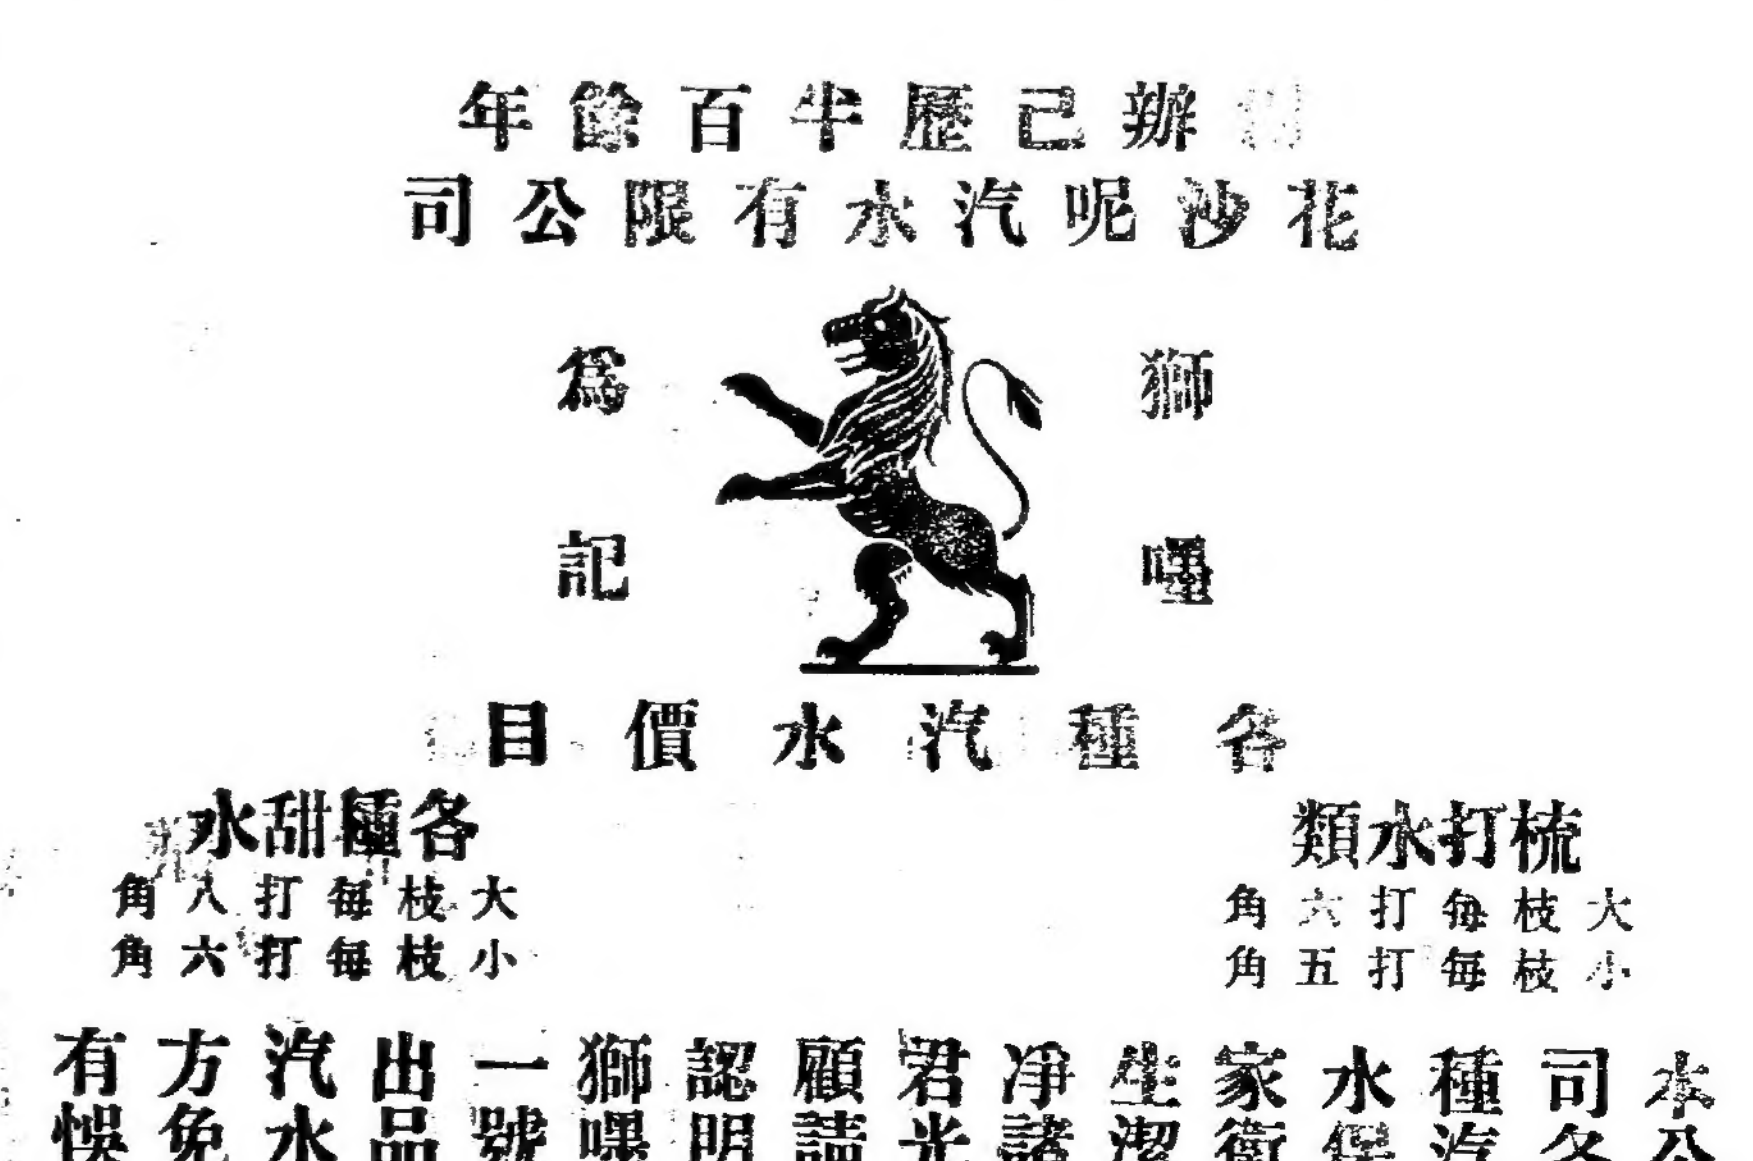 辦已歷半百餘年
花沙呢汽水有限公司
獅嚜
爲記
各種汽水價目
梳打水類
大枝每打六角
小枝每打五角
各種甜水
大枝每打八角
小枝每打六角
本公
司各
種汽
水係
家衛
生潔
淨諸
君光
顧請
認明
獅嚜
一號
出品
汽水
方免
有悞